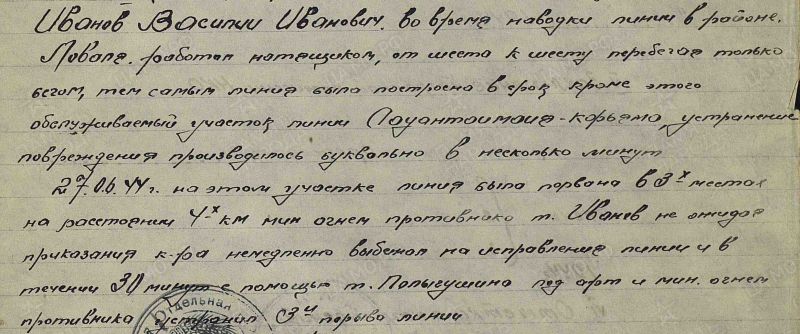 Иванов Василий Иванович. во время наводки линии в районе.
Ловая. работал натящиком, от шеста к шесту перебегая только
бегом, тем самым линия была построена в срок кроме этого
обслуживаемый участок линии корьяма, устранение
повреждения производилось буквально в несколько минут
27.06.44 г. на этом участке линия была порвана в 3х местах
на расстоянии 4-х км мин огнем противнико т. Иванов не ожидая
приказания к-ра немедленно выбежал на исправления линии и в
течении 30 минут с помощью т. Полыгушина под арт и мин. огнем
противника устранил 3и порыва линии
дельная